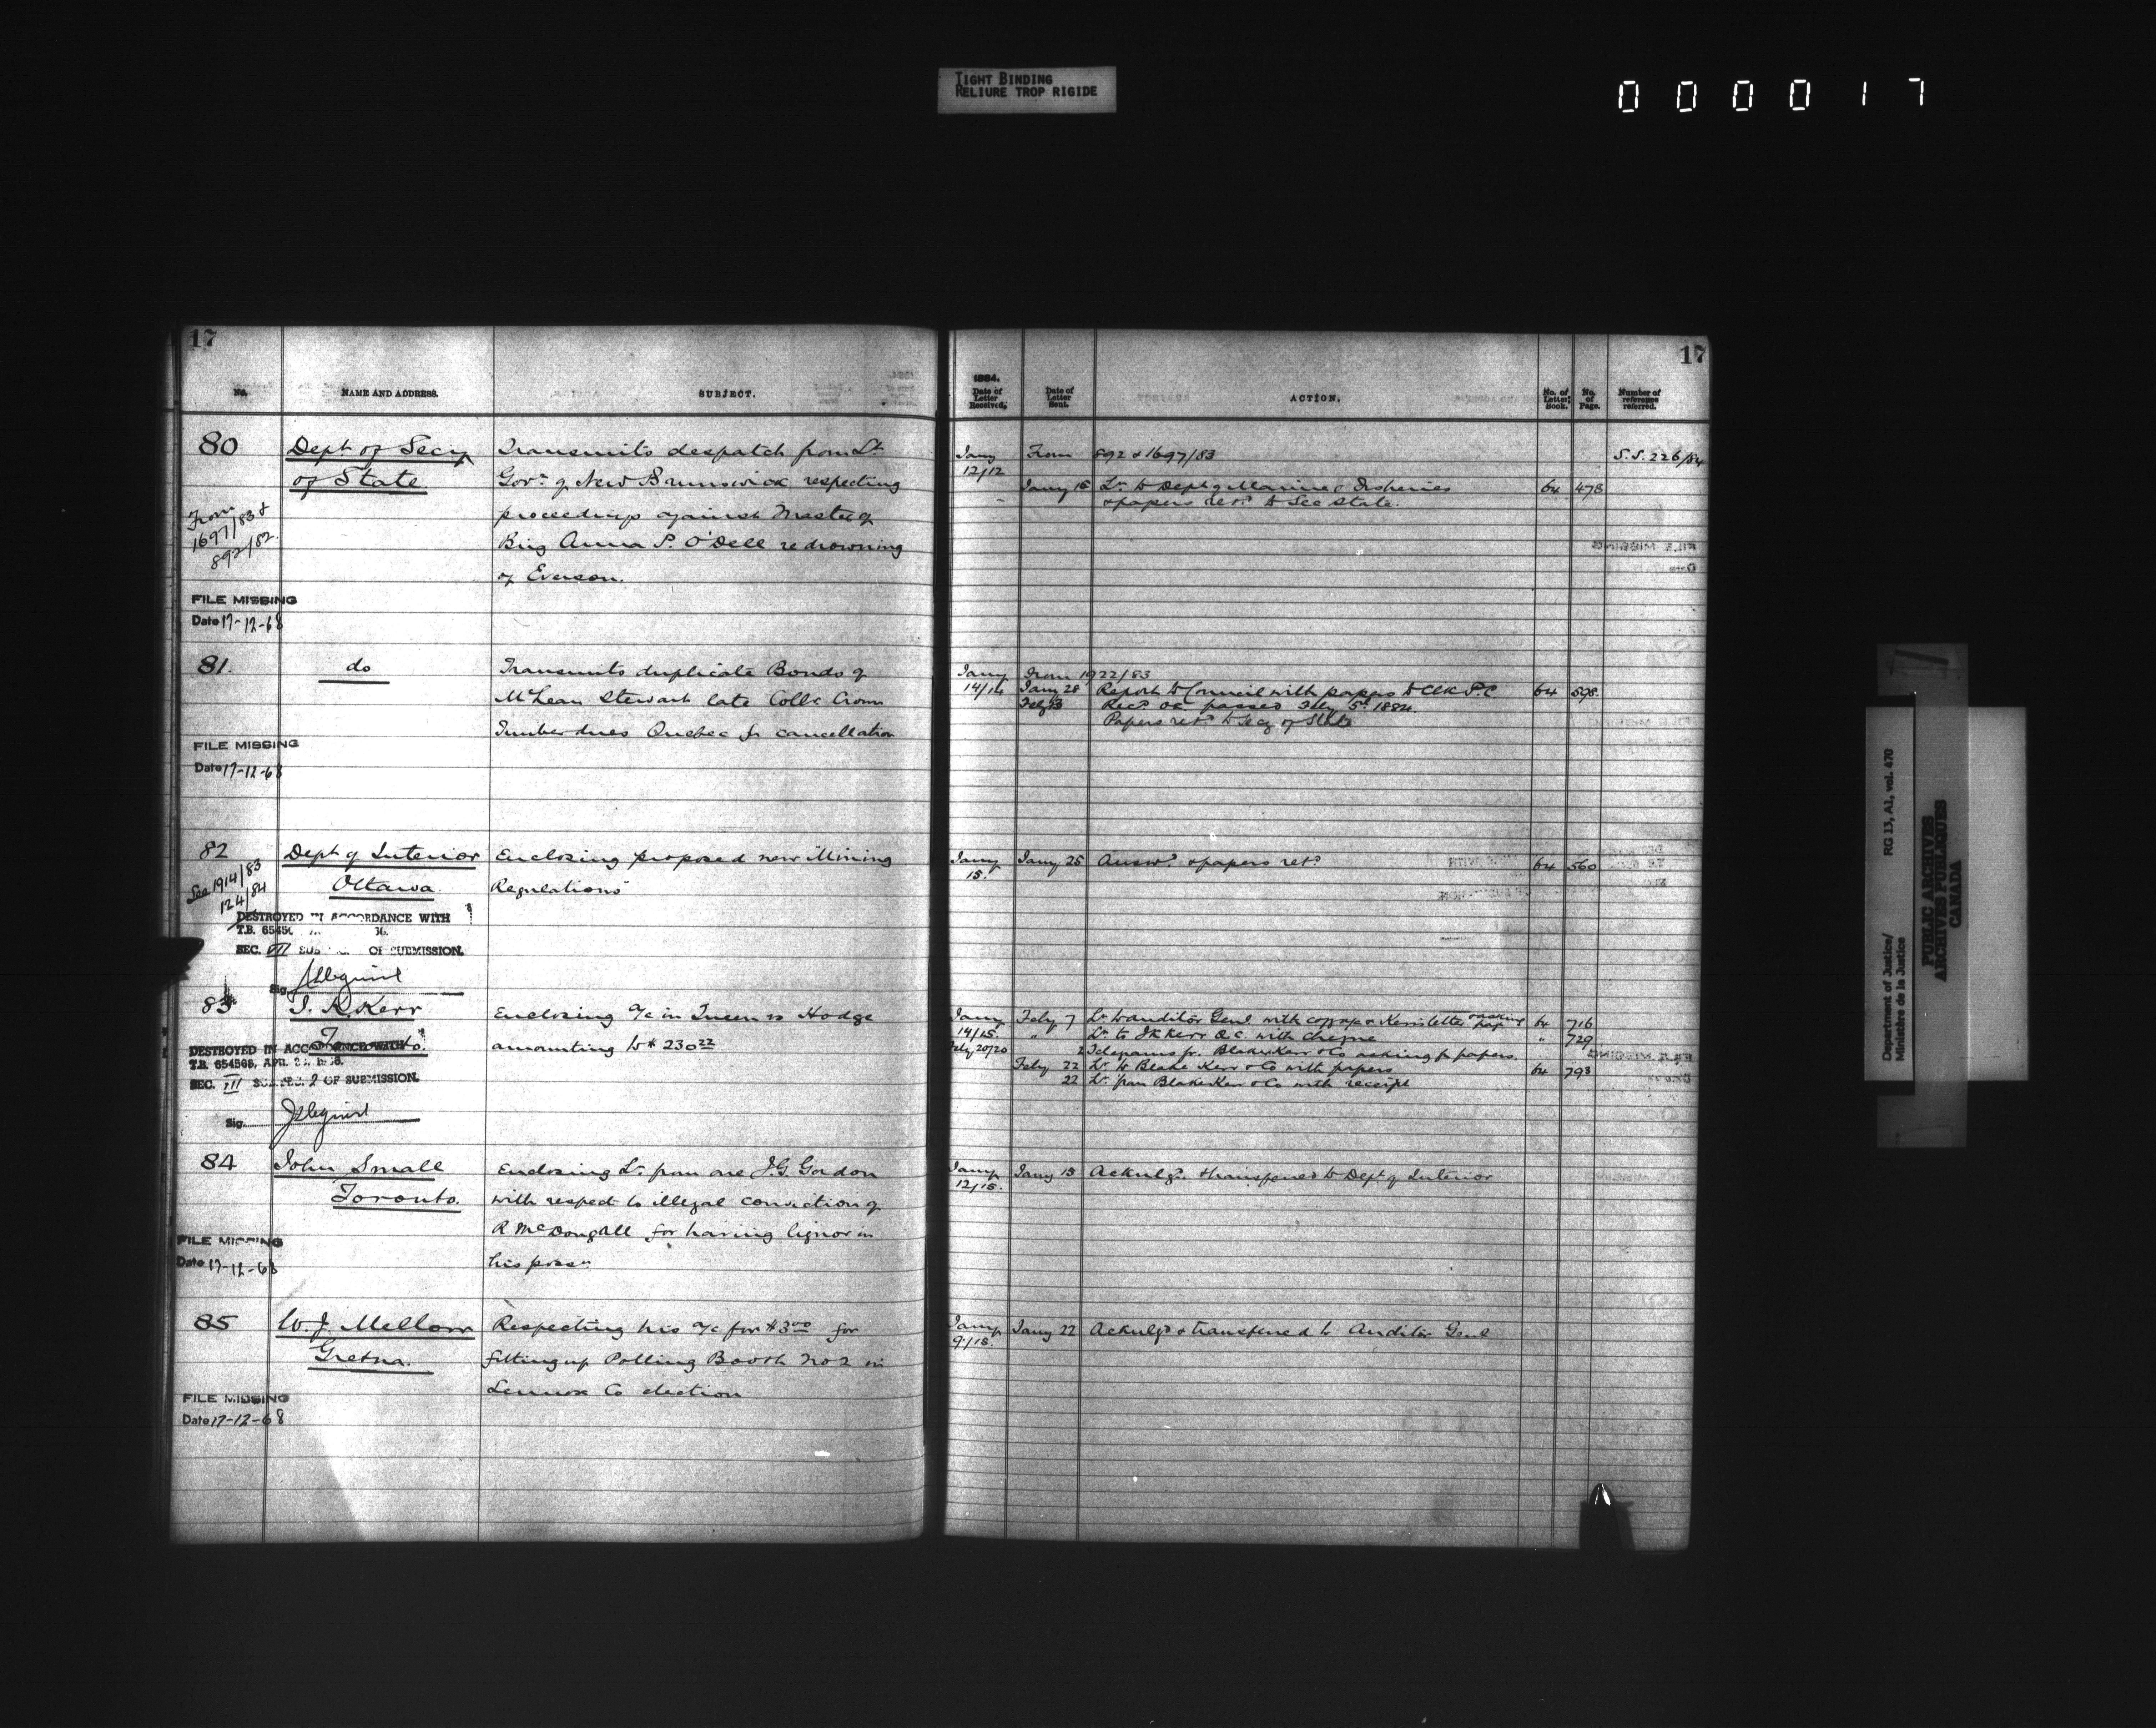 TIGHT BINDING
RELIURE TROP RIGIDE
000017
17
No.
NAME AND ADDRESS.
SUBJECT.
80
Dept of Secy
of State
From
1697/83 &
892/82.
FILE MISSING
Date 17-12-68
Transmits despatch from Lt
Govr of New Brunswick respecting
proceedings against Master of
Brig Anna P. O'Dell re drowning
of Everson.
81.
do
FILE MISSING
Date 17-12-68
Transmits duplicate Bonds of
McLean Stewart late Collr Crown
Timber dues Quebec for cancellation
82
See 1914/83
124/84
Dept of Interior
Ottawa
DESTROYED IN ACCORDANCE WITH
T.B.
SEC. VII OF SUBMISSION.
Sig.
Enclosing proposed new Mining
Regulations
83
J. K. Kerr
Toronto.
DESTROYED IN ACCORDANCE WITH
T.B. 654568, APR.
SEC. VII 2 OF SUBMISSION.
Sig.
Enclosing a/c in Queen vs Hodge
amounting to $ 230 22
84
John Small
Toronto.
FILE MISSING
Date 17-12-68
Enclosing Lr from one J.G. Gordon
with respect to illegal conviction of
R McDougall for having liquor in
his possn
85
W. J. Mellon
Gretna.
FILE MISSING
Date 17-12-68
Respecting his a/c for $3 00 for
fitting up Polling Booth No 2 in
Lennox Co election
17
1884.
Date of Letter Received.
Date of Letter Sent.
ACTION.
No. of Letter Book.
No. of Page.
Number of reference referred.
Jany From 892 & 1697/83 S.S. 226/84
12/12
Jany 15 Lr to Dept of Marine & Fisheries 64 478
& papers retd to Sec State.
Jany From 1922/83
14/14 Jany 28 Report to Council with papers to Clk P.C 64 598.
Feby 13 Recd OC passed Feby 5th 1884.
Papers retd to Secy of State
Jany Jany 25 Answd & papers retd 64 560
15.
Jany Feby 7 Lr to Auditor Genl with copy of Kerr's letter asking 64 716
14/15. " Lr to J K Kerr Q.C. with cheque " 729
Feby 20/20 2 Telegrams fr. Blake Kerr & Co asking for papers.
Feby 22 Lr to Blake Kerr & Co with papers 64 793
22 Lr from Blake Kerr & Co with receipt
Jany Jany 15 Acknlgd. & transferred to Dept of Interior
12/15.
Jany Jany 22 Acknlgd & transferred to Auditor Genl
9/15.
Department of Justice/
Ministère de la Justice
RG 13, A1, vol. 470
PUBLIC ARCHIVES
ARCHIVES PUBLIQUES
CANADA